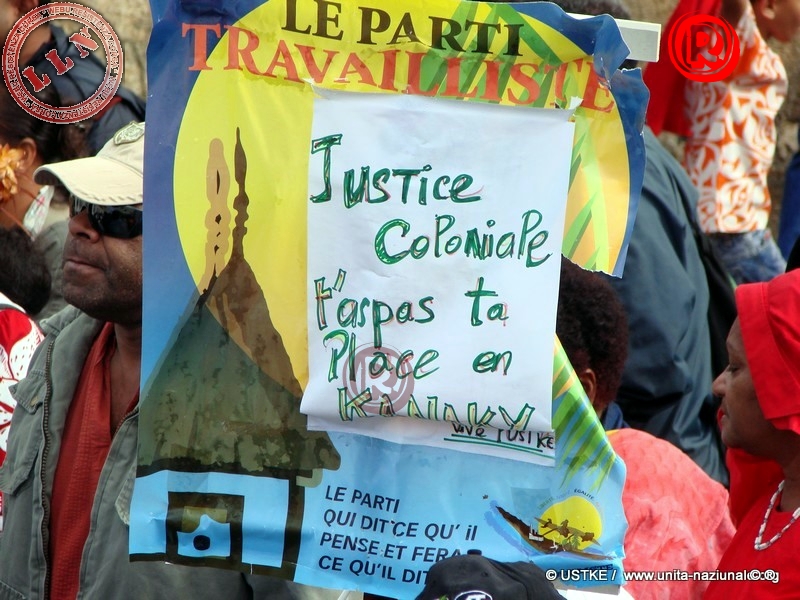 LE PARTI
TRAVAILLISTE
JUSTICE
COLONIALE
t'as pas ta
Place en
KANAKY
VIVE l'USTKE
LE PARTI
QUI DIT CE QU'il
PENSE ET FERA
CE QU'IL DIT
EGALITE
LLN
R
R
© USTKE / www.unita-naziunale.org